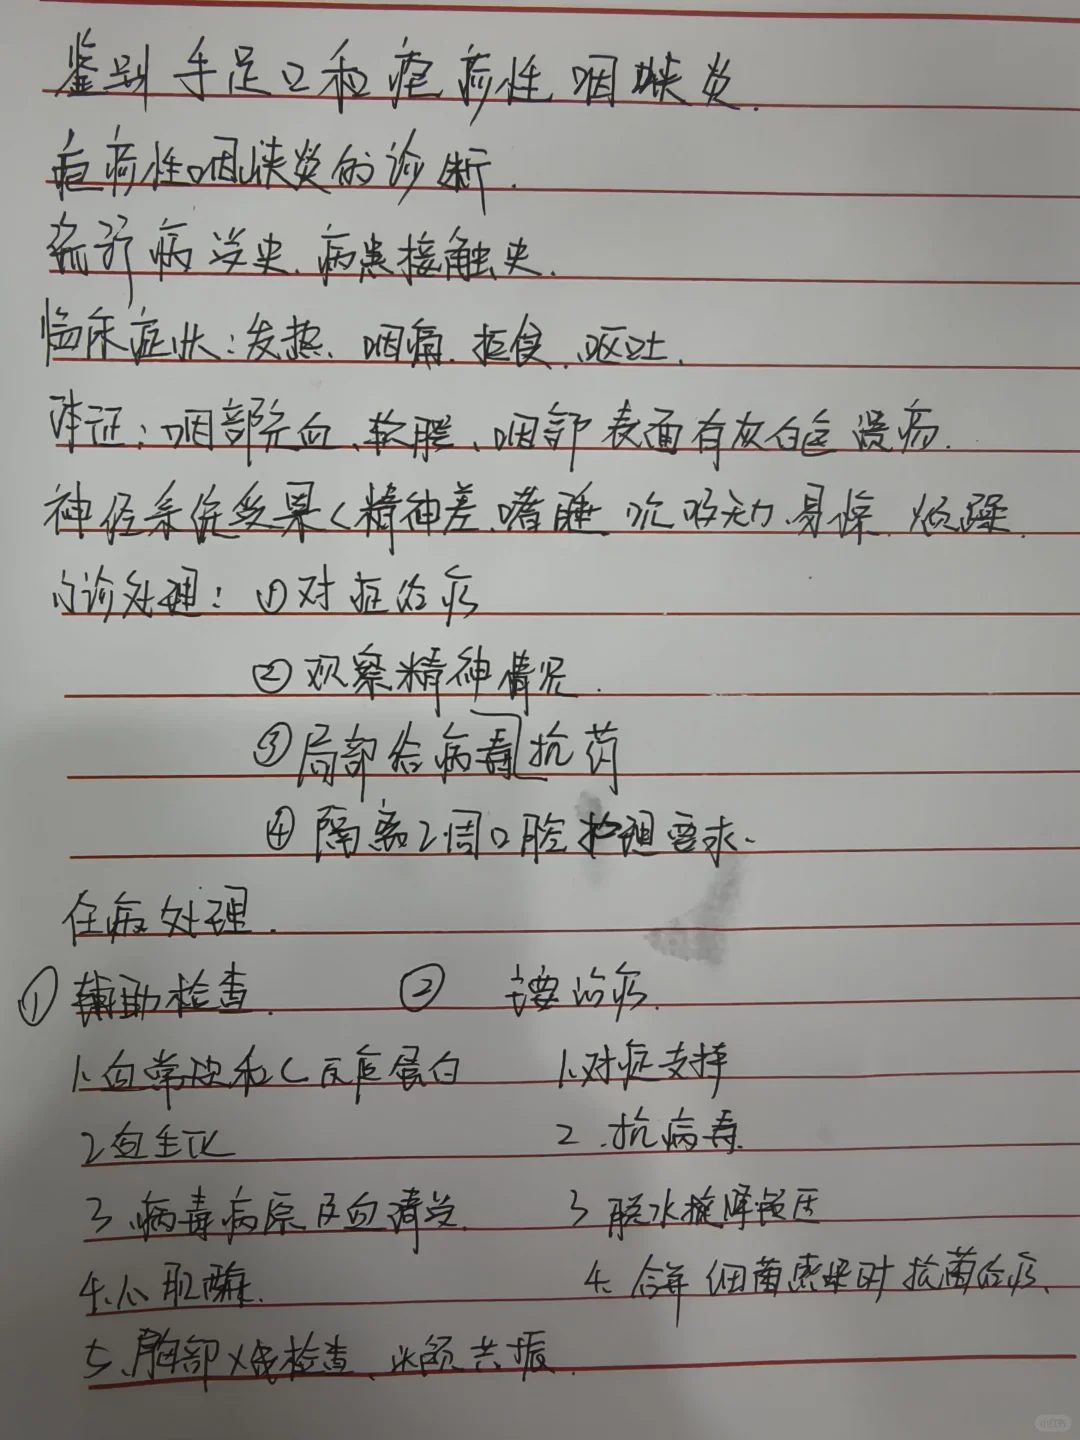 鉴别手足口和疱疹性咽峡炎.
疱疹性咽峡炎的诊断.
流行病学史、病患接触史.
临床症状:发热、咽痛、拒食、呕吐.
体征:咽部充血、软腭、咽部表面有灰白色溃疡.
神经系统受累<精神差、嗜睡、吮吸无力、易惊、烦躁.
门诊处理:①对症治疗
②观察精神情况.
③局部给病毒抗药
④隔离2周口腔护理要求.
住病处理.
①辅助检查. ② 主要治疗.
1.血常规和C反应蛋白 1.对症支持
2血生化 2.抗病毒
3.病毒病原及血清学. 3脱水 降颅压
4.心肌酶. 4.合并细菌感染时抗菌治疗.
5.胸部X线检查、 共振.
小红书